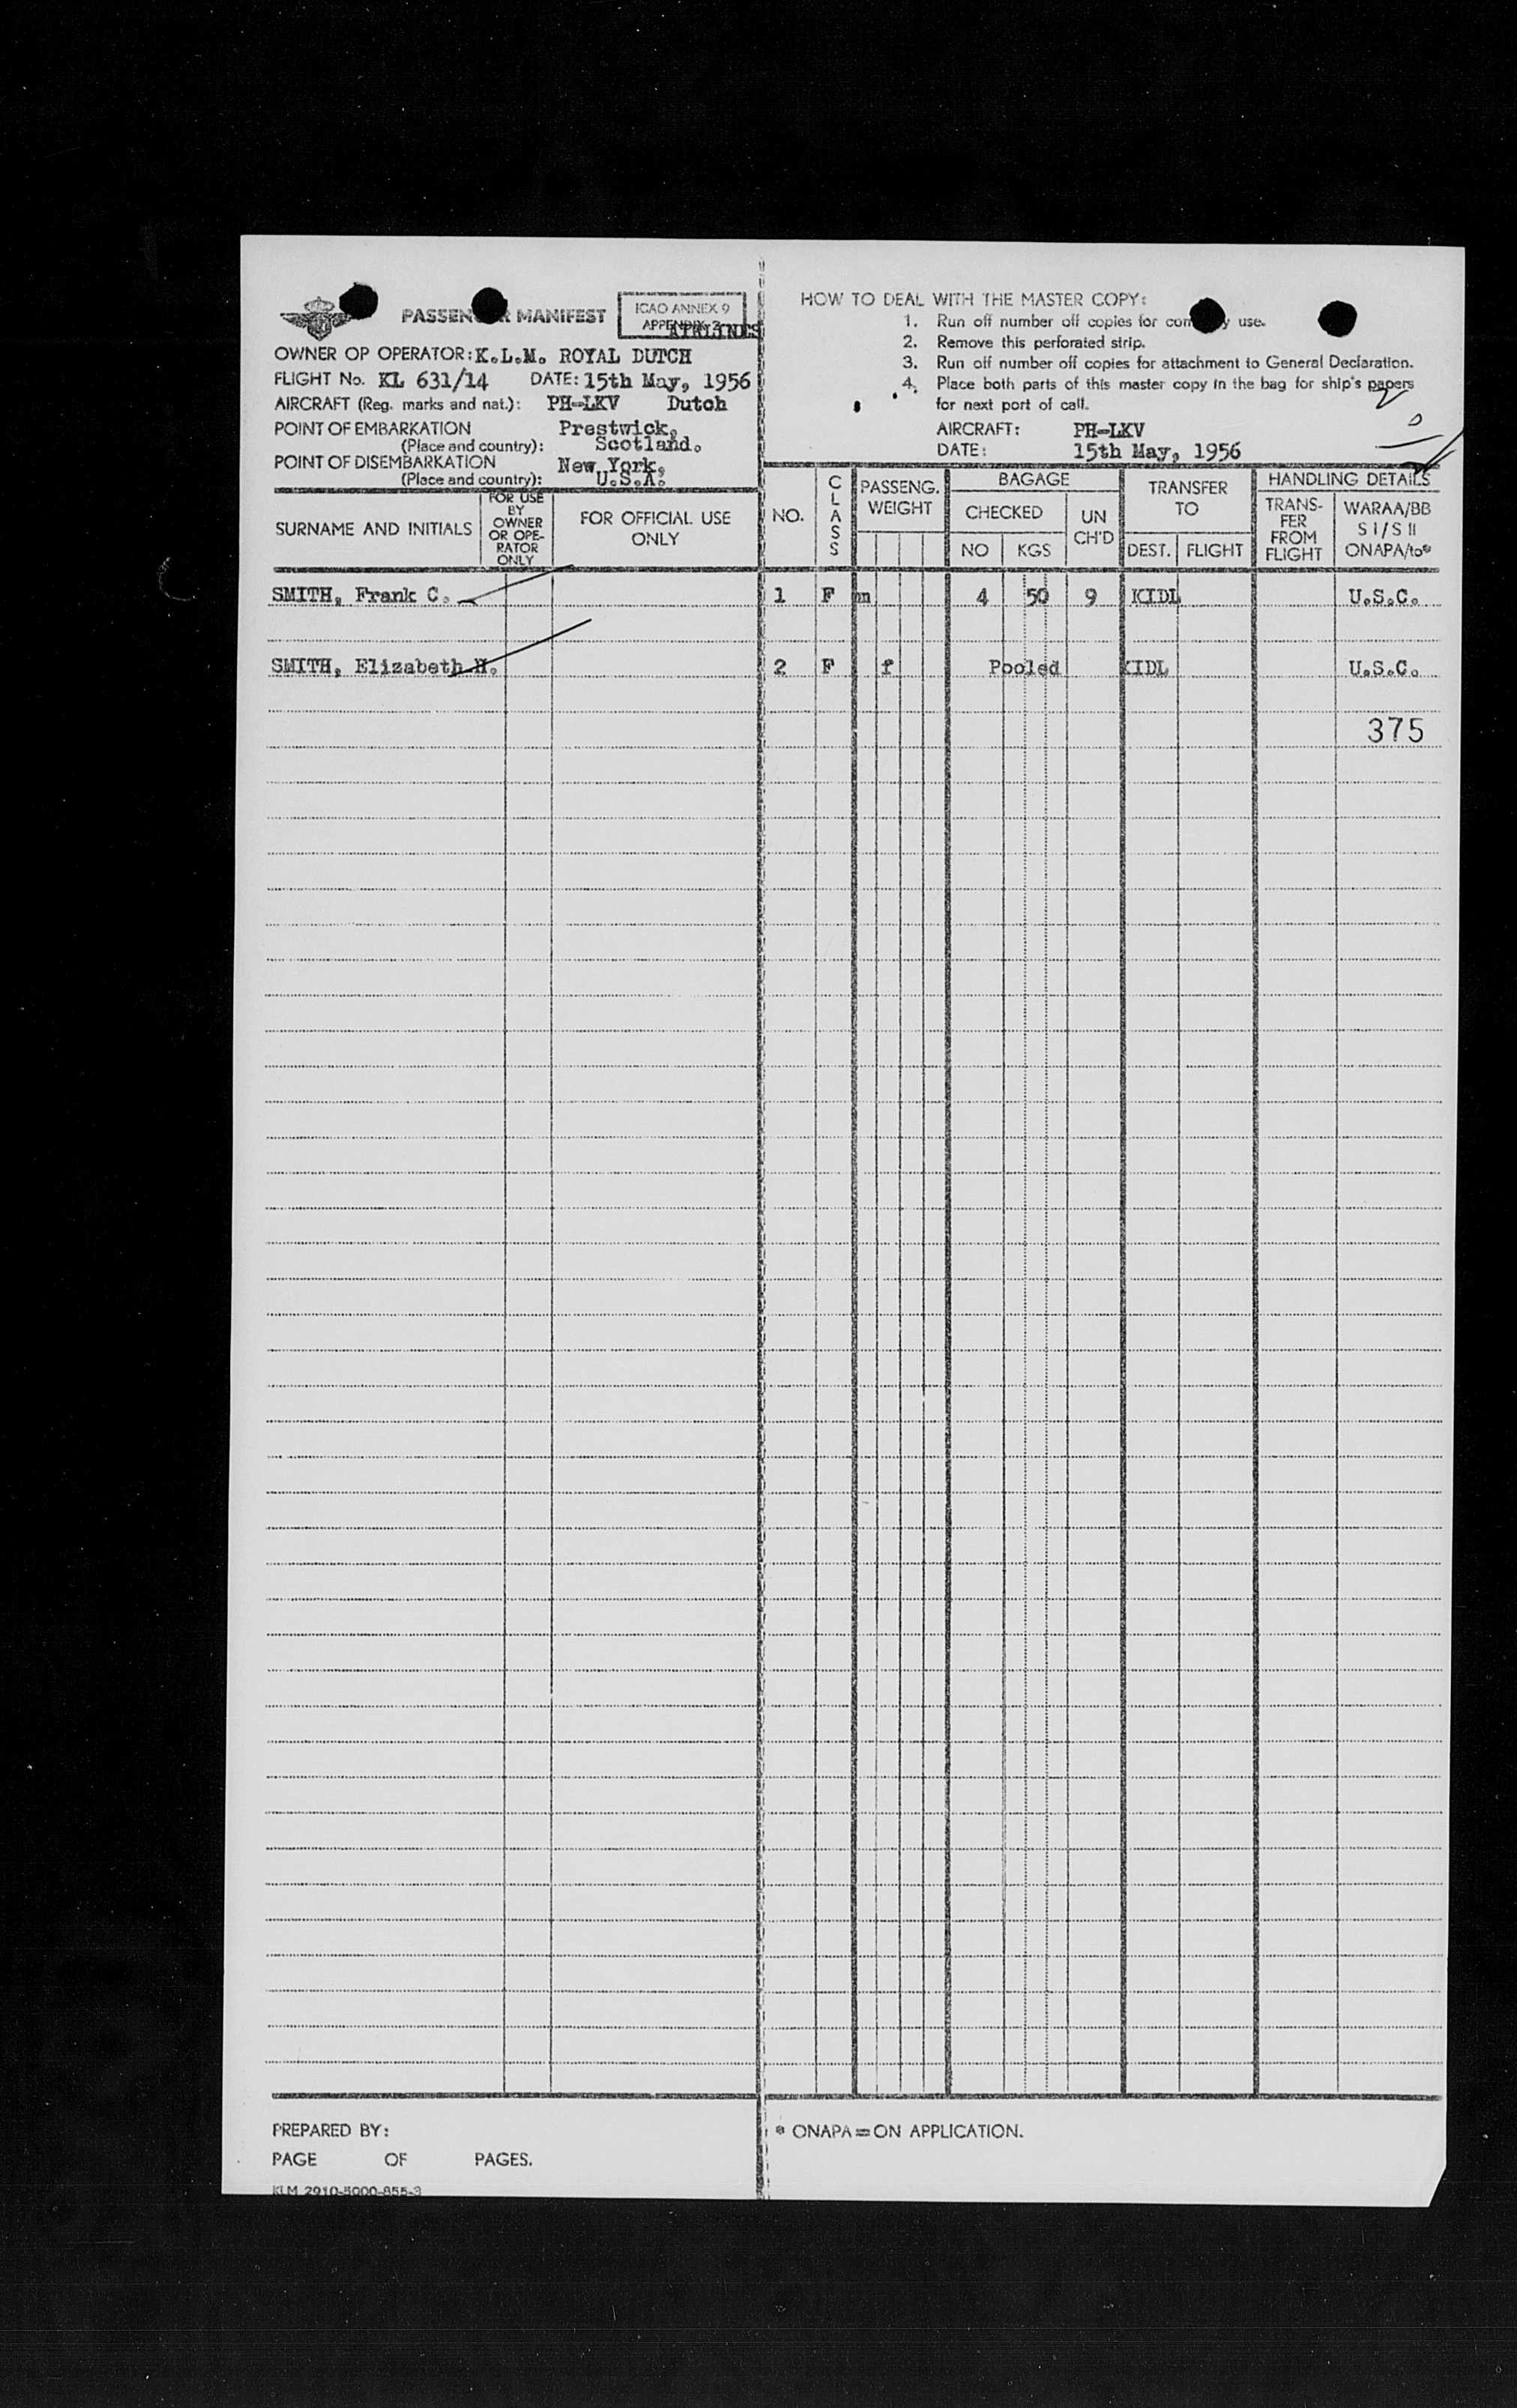 PASSENGER MANIFEST
ICAO ANNEX 9
APPENDIX 2
AIRLINES
OWNER OP OPERATOR: K.L.M. ROYAL DUTCH
FLIGHT No. KL 631/14 DATE: 15th May, 1956
AIRCRAFT (Reg. marks and nat.): PH-LKV Dutch
POINT OF EMBARKATION Prestwick,
(Place and country): Scotland.
POINT OF DISEMBARKATION New York,
(Place and country): U.S.A.
HOW TO DEAL WITH THE MASTER COPY:
1. Run off number off copies for company use.
2. Remove this perforated strip.
3. Run off number off copies for attachment to General Declaration.
4. Place both parts of this master copy in the bag for ship's papers
for next port of call.
AIRCRAFT: PH-LKV
DATE: 15th May, 1956
SURNAME AND INITIALS
FOR USE
BY
OWNER
OR OPE-
RATOR
ONLY
FOR OFFICIAL USE
ONLY
NO.
CLASS
PASSENG.
WEIGHT
BAGAGE
CHECKED
NO KGS
UN
CH'D
TRANSFER
TO
DEST. FLIGHT
HANDLING DETAILS
TRANS-
FER
FROM
FLIGHT
WARAA/BB
S I/S II
ONAPA/to*
SMITH, Frank C. 1 F m 4 50 9 KIDL U.S.C.
SMITH, Elizabeth H. 2 F f Pooled KIDL U.S.C.
375
PREPARED BY:
PAGE OF PAGES.
KLM 2910-5000-855-3
* ONAPA = ON APPLICATION.